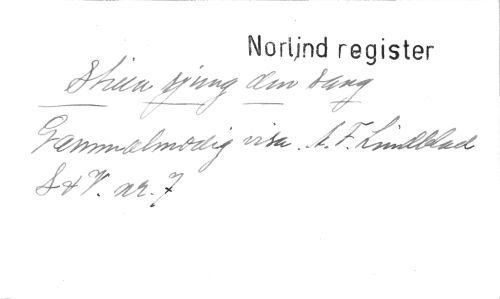 Norlind register
Stieu sjung den sang
Gammalmodig visa. A. F. Lindblad
S & V. nr. 7